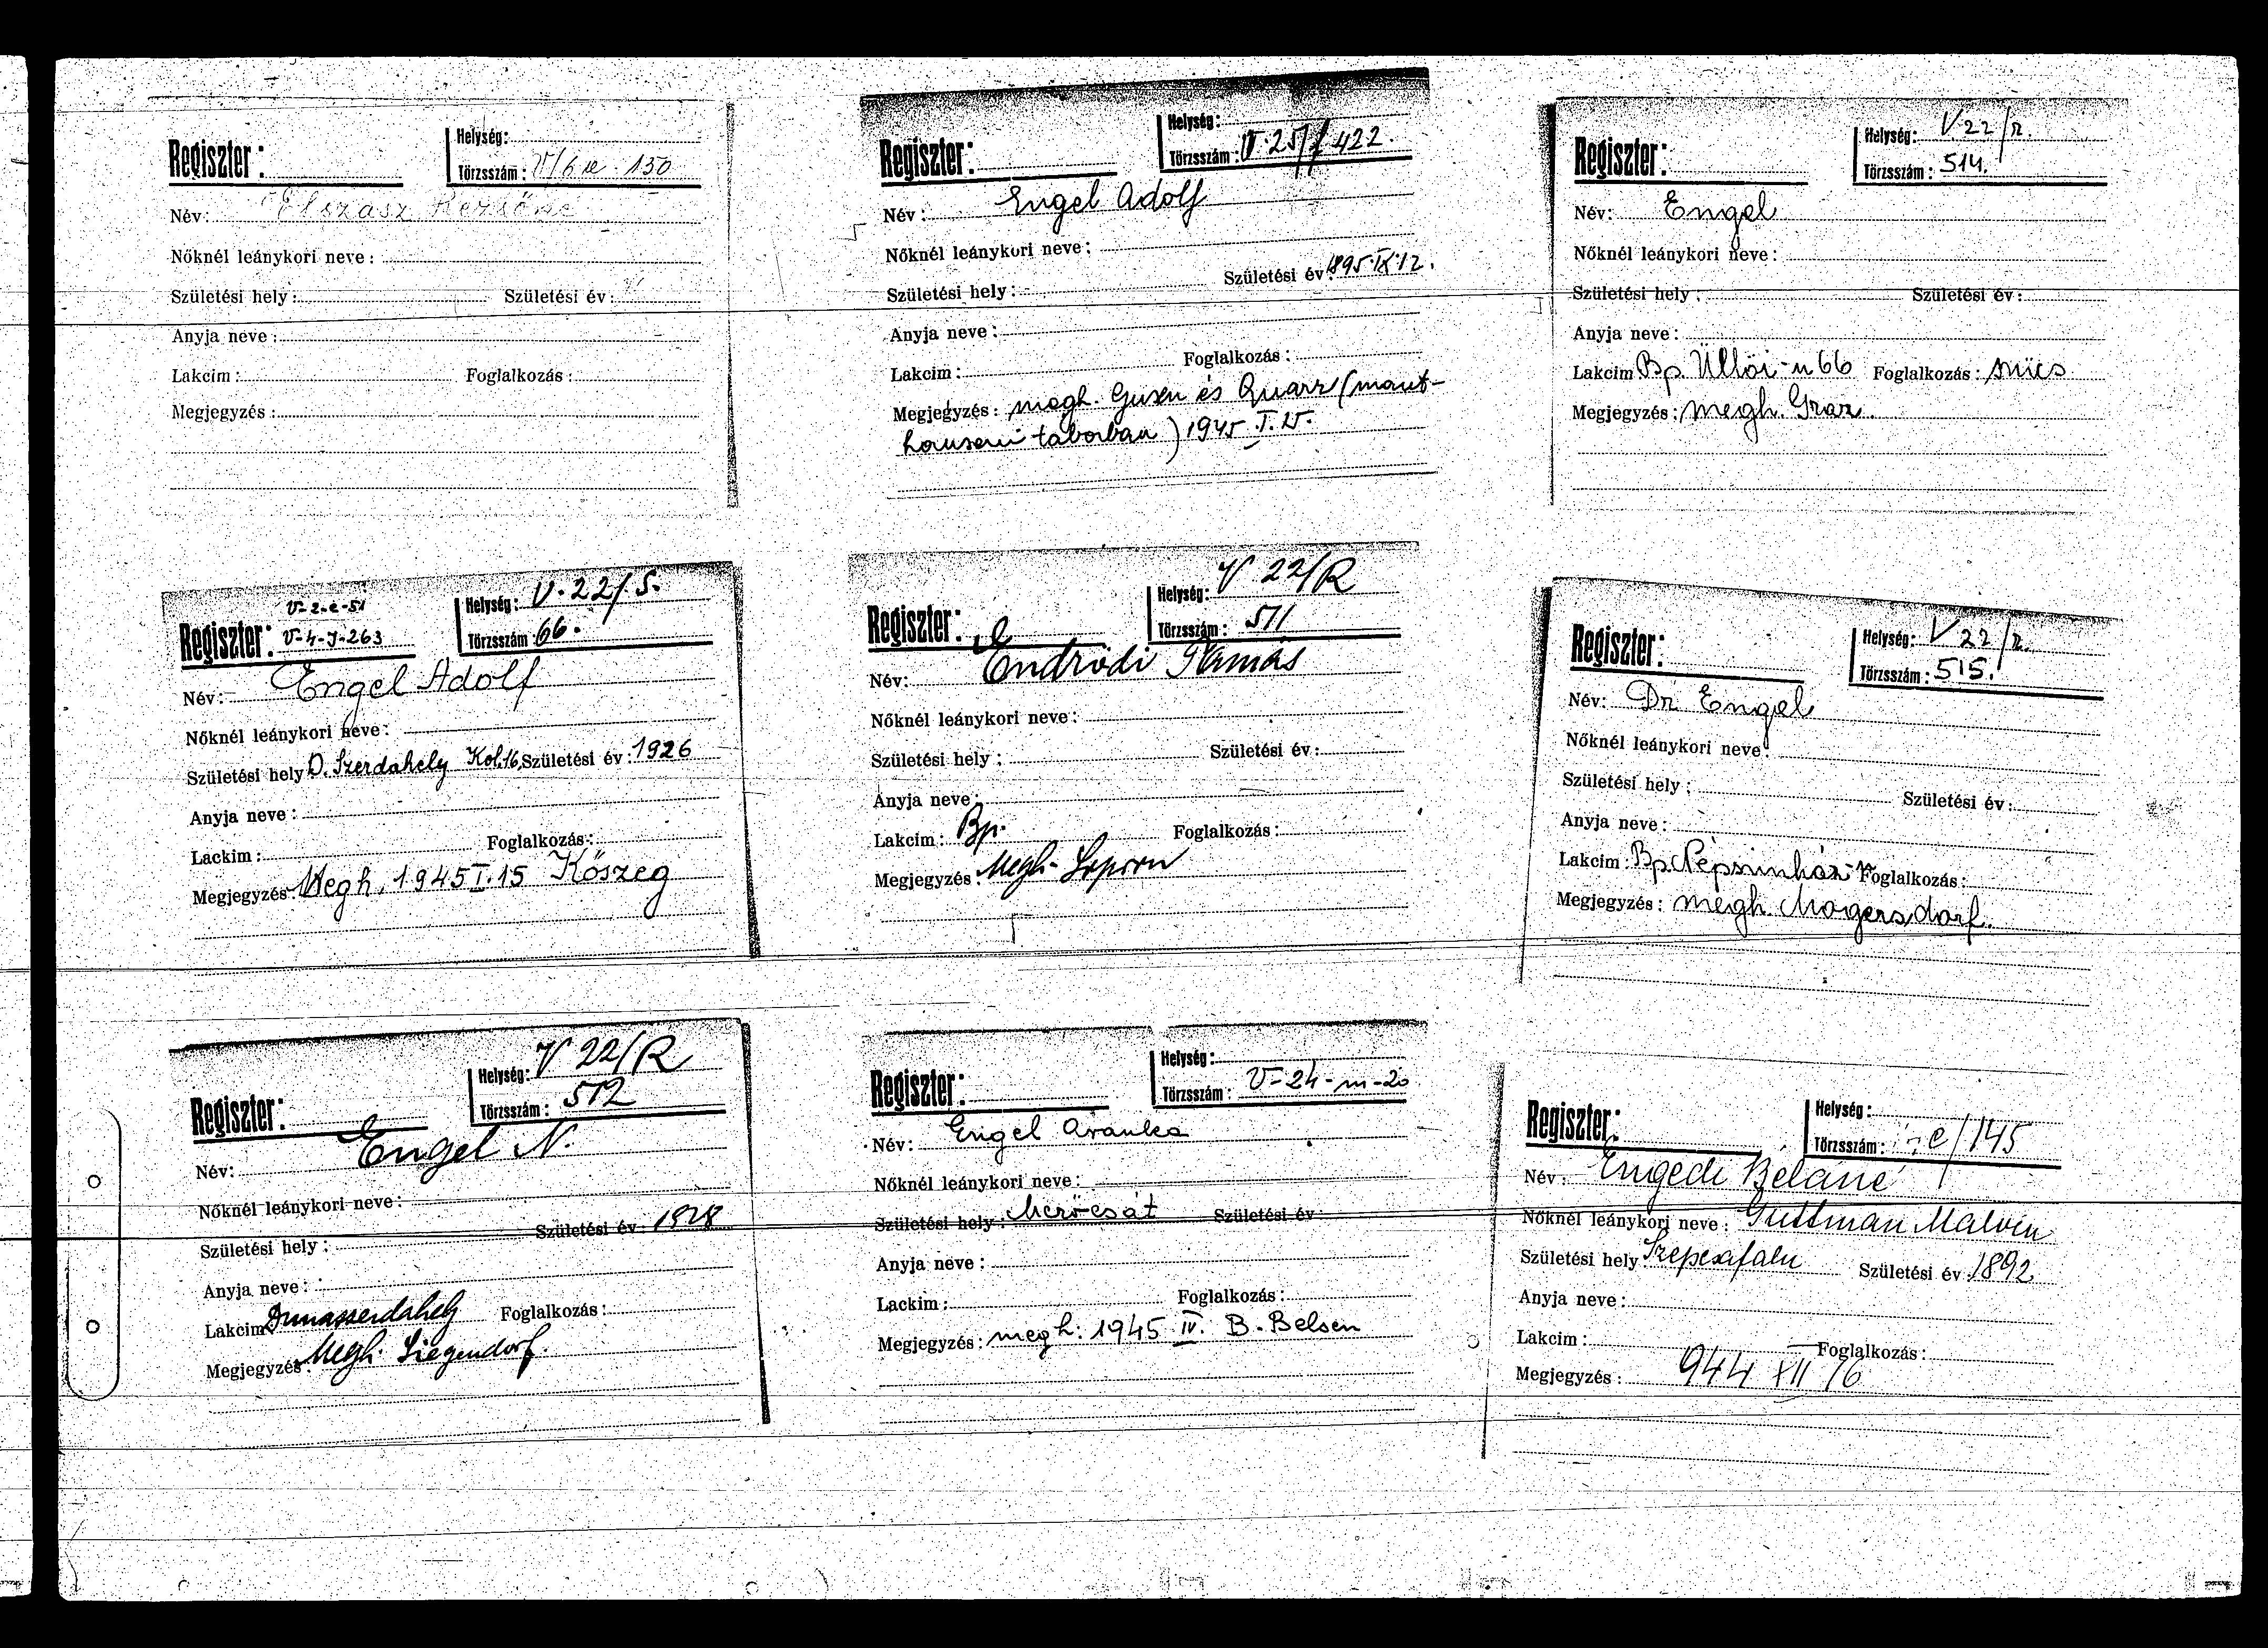 Regiszter:
Helység:
Törzsszám: V/6 130
Név: Elszász Rezsőné
Nőknél leánykori neve:
Születési hely: Születési év:
Anyja neve:
Lakcim: Foglalkozás:
Megjegyzés:
Regiszter:
Helység:
Törzsszám: V.25/f 422.
Név: Engel Adolf
Nőknél leánykori neve:
Születési hely: Születési év: 1895.IX.12.
Anyja neve:
Lakcim: Foglalkozás:
Megjegyzés: megh. Gusen és Quarz (maut-
hauseni táborban) 1945.I.25.
Regiszter:
Helység: V.22/r.
Törzsszám: 514.
Név: Engel
Nőknél leánykori neve:
Születési hely: Születési év:
Anyja neve:
Lakcim Bp. Üllői-u 66 Foglalkozás: szücs
Megjegyzés: megh. Graz.
V-2-e-51
Regiszter: V-4-J-263
Helység: V.22/.S.
Törzsszám: 66.
Név: Engel Adolf
Nőknél leánykori neve:
Születési hely D. Szerdahely Kol.16, Születési év: 1926
Anyja neve:
Lackim: Foglalkozás:
Megjegyzés: Megh. 1945 I. 15 Kőszeg
Regiszter:
Helység: V 22/R
Törzsszám: 511
Név: Endrődi Tamás
Nőknél leánykori neve:
Születési hely: Születési év:
Anyja neve:
Lakcim: Bp. Foglalkozás:
Megjegyzés: Megh. Sopron
Regiszter:
Helység: V 22/r.
Törzsszám: 515.
Név: Dr Engel
Nőknél leánykori neve:
Születési hely: Születési év:
Anyja neve:
Lakcim: Bp. Népszinház-u Foglalkozás:
Megjegyzés: megh. Mogersdorf.
Regiszter:
Helység: V 22/R
Törzsszám: 512
Név: Engel N.
Nőknél leánykori neve:
Születési hely: Születési év: 1928
Anyja neve:
Lakcim: Dunaszerdahely Foglalkozás:
Megjegyzés: Megh. Siegendorf.
Regiszter:
Helység:
Törzsszám: V-24-m-20
Név: Engel Aranka
Nőknél leánykori neve:
Születési hely: Mezőcsát Születési év
Anyja neve:
Lackim: Foglalkozás:
Megjegyzés: megh: 1945. IV. B.-Belsen
Regiszter:
Helység:
Törzsszám: e/145
Név: Engedi Béláné
Nőknél leánykori neve: Guttman Malvin
Születési hely Szepesófalu Születési év 1892
Anyja neve:
Lakcim: Foglalkozás:
Megjegyzés: 944 XII 16